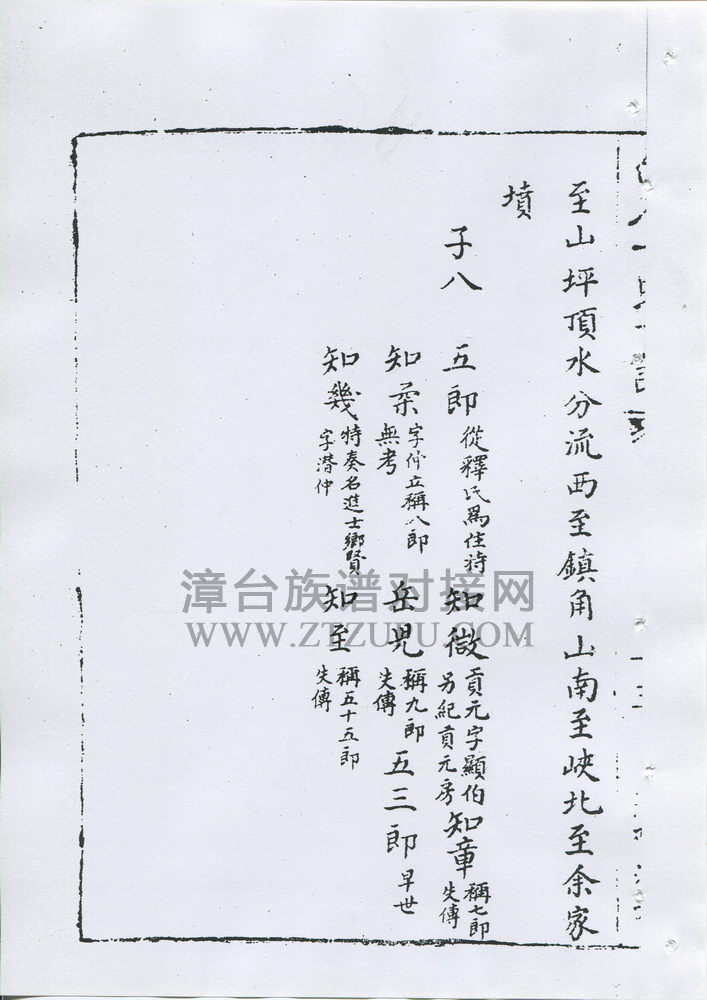 至山坪頂水分流西至鎮角山南至峽北至余家
墳
子八 五郎 從釋氏為住持 知微 貢元字顯伯 另紀貢元房 知章 稱七郎 失傳
知柔 字仲立稱八郎 無考 岳児 稱九郎 失傳 五三郎 早世
知幾 特奏名進士鄉賢 字潛仲 知至 稱五十五郎 失傳
漳台族谱对接网
WWW.ZTZUPU.COM